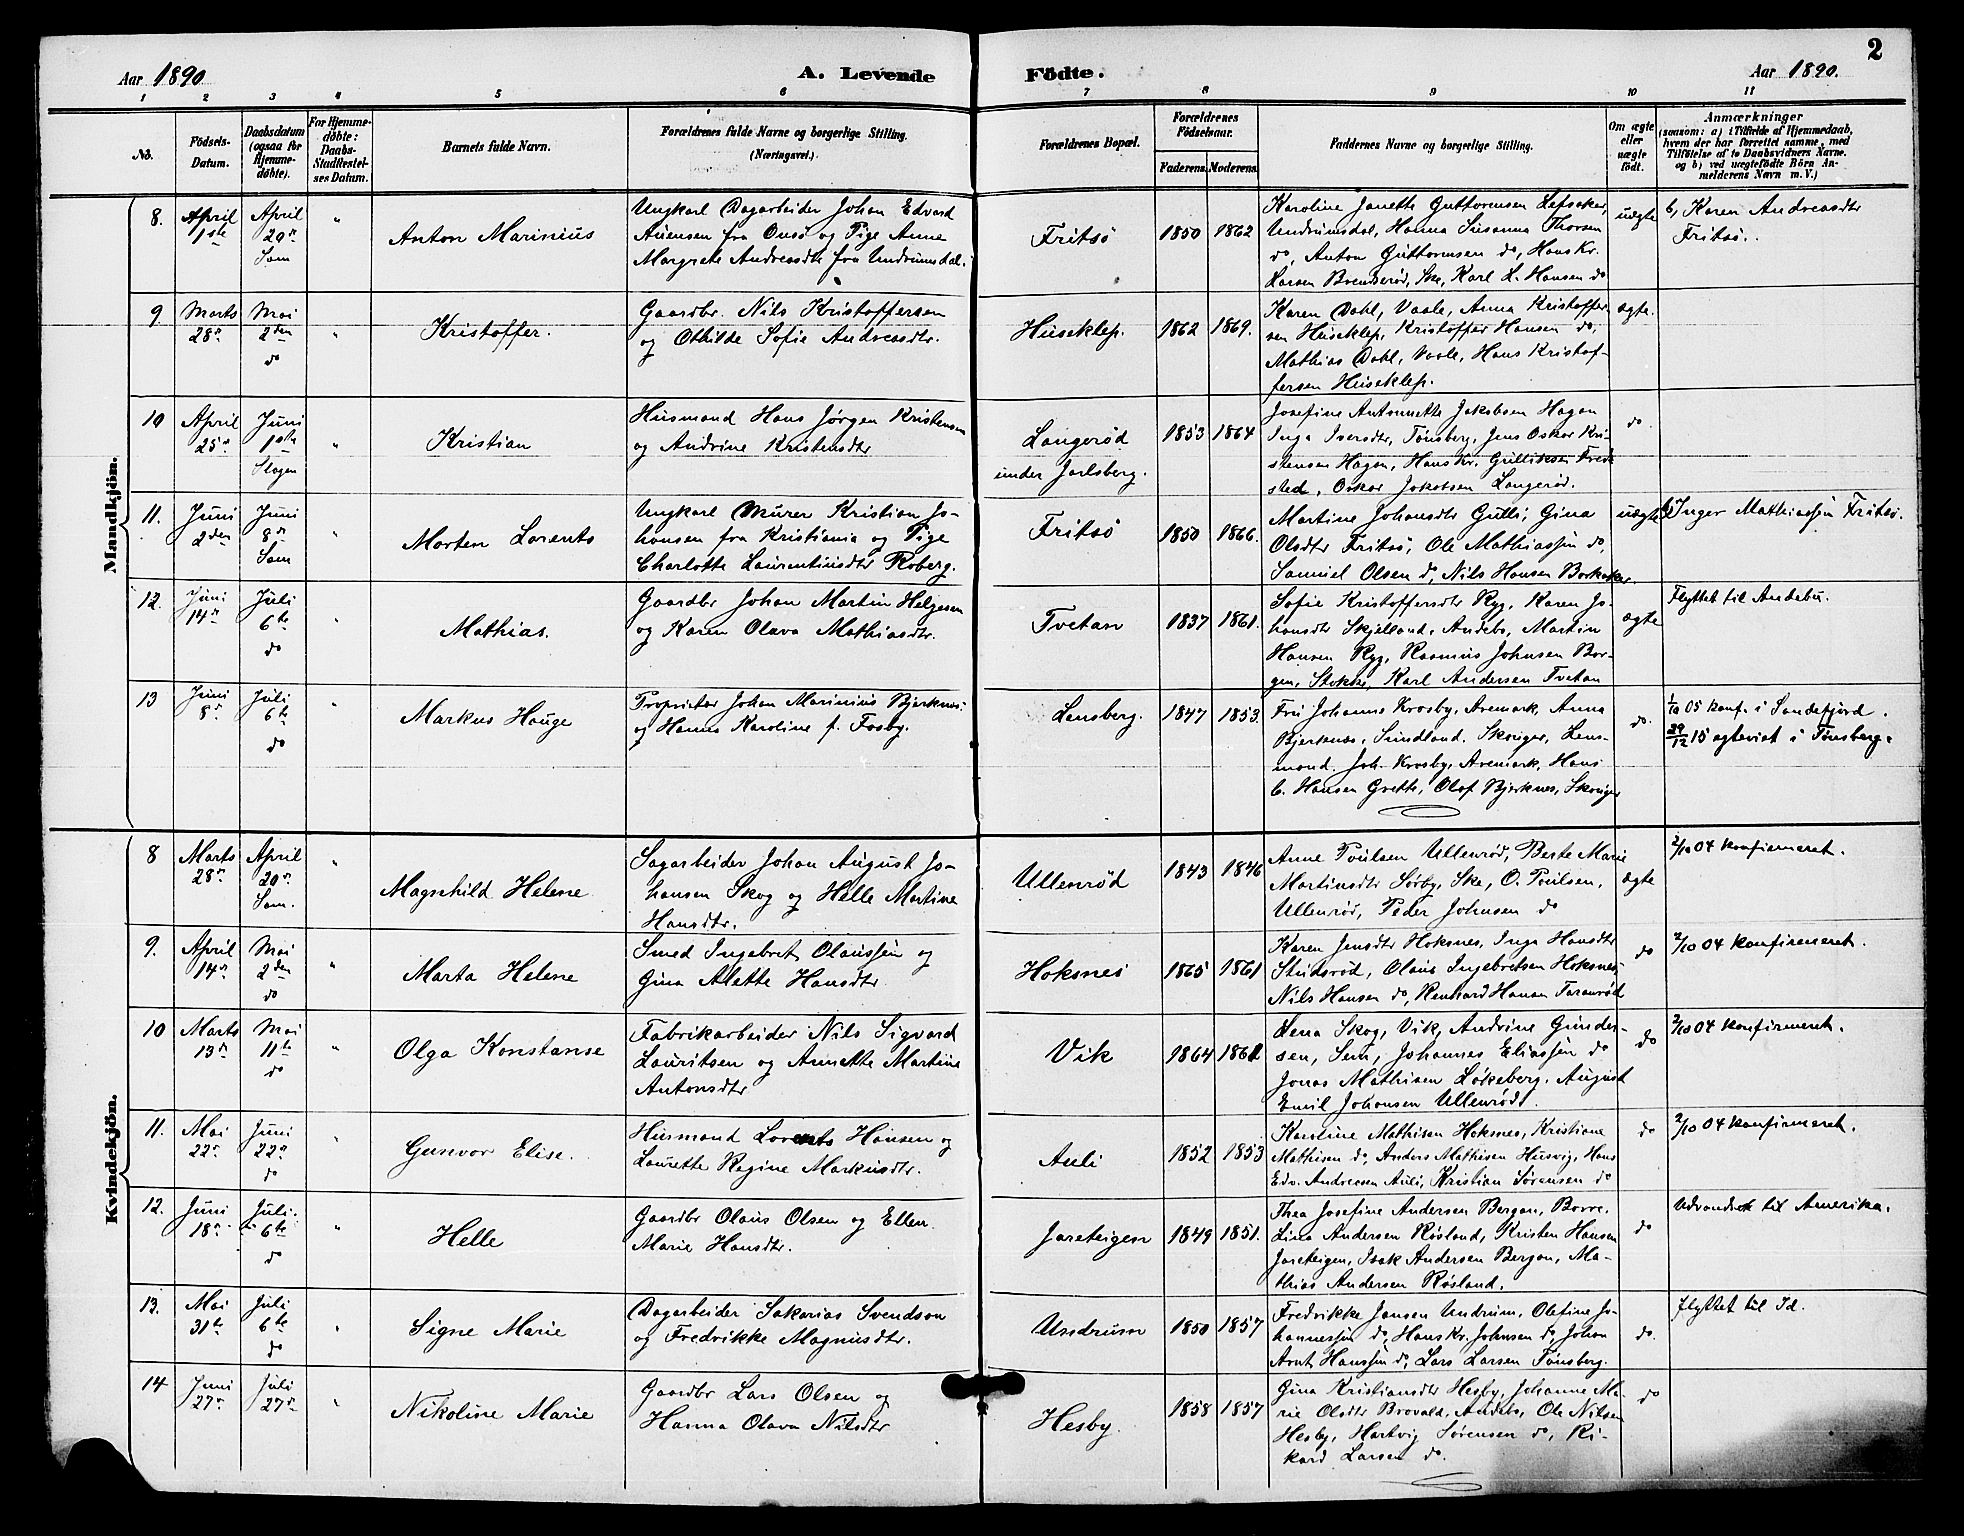 2
Aar 1890
A. Levende Födte.
Aar 1890.
1 2 3 4 5 6 7 8 9 10 11
No.
Födsels-
Datum.
Daabsdatum
(ogsaa for
Hjemme-
döbte).
For Hjemme-
døbte:
Daabs-
Stadfæstel-
ses Datum.
Barnets fulde Navn.
Forældrenes fulde Navne og borgerlige Stilling.
(Næringsvei.)
Forældrenes Bopæl.
Forældrenes
Födselsaar.
Faderens.
Moderens.
Faddernes Navne og borgerlige Stilling.
Om ægte
eller
uægte
födt.
Anmærkninger
(saasom: a) i Tilfælde af Hjemmedaab,
hvem der har forrettet samme, med
Tilføielse af to Daabsvidners Navne.
og b) ved uægtefödte Börn An-
melderens Navn m. V.)
Mandkjön.
8.
April
1ste
April
20de
Sem
Anton Marinius
Ungkarl Dagarbeider Johan Edvard
Auensen fra Onsø og Pige Anne
Margrete Andreasdtr fra Undrumsdal.
Fritsø
1850
1862
Karoline Janeth Guttormsen Lefsaker,
Undrumsdal, Hanna Susanna Thorsen
do, Anton Guttormsen do, Hans Kr.
Larsen Brendserød, Ske, Karl L. Hansen do
uægte
b, Karen Andreasdtr
Fritsø.
9.
Marts
28de
Mai
2den
do
Kristoffer.
Gaardbr. Nils Kristoffersen
og Othilde Sofie Andreasdtr.
Huseklep.
1862
1869.
Karen Dahl, Vaale, Anna Kristoffer-
sen Huseklep, Kristoffer Hansen do,
Mathias Dahl, Vaale, Hans Kristof-
fersen Huseklep.
ægte.
10
April
25de
Juni
1ste
Slagen
Kristian
Husmand Hans Jørgen Kristensen
og Andrine Kristensdtr
Langerød
under Jarlsberg.
1853
1864
Josefine Antonette Jakobsen Hagen
Inga Iversdtr, Tønsberg, Jens Oskar Kri-
stensen Hagen, Hans Kr. Gulliksen Fred-
sted, Oskar Jakobsen Langerød.
do.
11.
Juni
2den
Juni
8de
Sem
Morten Lorents
Ungkarl Murer Kristian Jo-
hansen fra Kristiania og Pige
Charlotte Laurentiusdtr Roberg.
Fritsø
1850
1866.
Martine Johansdtr Gulli, Gina
Olsdtr Fritsø, Ole Mathiassen do,
Samuel Olsen do, Nils Hansen Borkeker
uægte
Inger Mathiassen Fritsø.
12.
Juni
14de
Juli
6te
do
Mathias.
Gaardbr Johan Martin Helgesen
og Karen Olava Mathiasdtr.
Tvetan
1837
1861.
Sofie Kristoffersdtr Ryg, Karen Jo-
hansdtr Skjelland, Andebo, Martin
Hansen Ryg, Rasmus Johnsen Bor-
gen, Stokke, Karl Andersen Tvetan
ægte
Flyttet til Andebu.
13
Juni
8de
Juli
6te
do
Markus Hauge
Proprietær Johan Marinius Bjerknes
og Hanna Karoline f. Fosby.
Lensberg.
1847
1853.
Fru Johanne Krosby, Aremark, Anna
Bjerknes, Sundland, Skouger, Lens-
mand Joh. Krosby, Aremark, Hans
C. Hansen Greth, Olof Bjerknes, Skouger
do.
1/10 05 konf. i Sandefjord.
29/12 15 ægteviet i Tønsberg.
Kvindekjön.
8
Marts
28de
April
20de
Sem.
Magnhild Helene
Sagarbeider Johan August Jo-
hansen Skog og Helle Martine
Hansdtr.
Ullenrød
1843
1846
Anne Poulsen Ullenrød, Berte Marie
Martinsdtr Sørby, Ske, O. Poulsen,
Ullenrød, Peder Johnsen do
ægte
2/10 04 konfirmeret.
9.
April
14de
Mai
2den
do
Marta Helene
Smed Ingebret Olaussen og
Gina Alette Hansdtr
Hoksnes
1865
1861
Karen Jensdtr Hoksnes, Inga Hansdtr
Studsrød, Olaus Ingebretsen Hoksnes,
Nils Hansen do, Renhard Hansen Taranrød
do
2/10 04 konfirmeret.
10
Marts
13de
Mai
11te
do
Olga Konstanse
Fabrikarbeider Nils Sigvard
Lauritsen og Annette Martine
Antonsdtr
Vik
1864
1861
Lena Skog, Vik, Andrine Gunder-
sen, Sem, Johannes Eliassen do
Jonas Mathisen Løkeberg, August
Emil Johansen Ullenrød.
do
2/10 04 konfirmeret.
11.
Mai
22de
Juni
22de
do
Gunvor Elise.
Husmand Lorents Hansen og
Laurette Regine Markusdtr.
Auli
1852
1853
Karoline Mathisen Hoksnes, Kristiane
Mathisen do, Anders Mathisen Husvig, Hans
Edv. Andreasen Auli, Kristian Sørensen do
do
2/10 04 konfirmeret.
12.
Juni
18de
Juli
6te
do
Helle
Gaardbr Olaus Olsen og Ellen
Marie Hansdtr.
Jareteigen
1849
1851.
Thea Josefine Andersen Bergan, Borre,
Lina Andersen Røsland, Kristen Hansen
Jareteigen, Isak Andersen Bergan, Ma-
thias Andersen Røsland.
do
Udvandret til Amerika.
13.
Mai
31te
Juli
6te
do
Signe Marie
Dagarbeider Sakarias Svendsen
og Fredrikke Magnusdtr.
Undrum
1850
1857
Fredrikke Jansen Undrum, Olefine Jo-
hannessen do, Hans Kr. Johnsen do, Johan
Arnt Hanssen do, Lars Larsen Tønsberg.
do.
flyttet til Id.
14
Juni
27de
Juli
27de
Nikoline Marie
Gaardbr Lars Olsen og
Hanna Olava Nilsdtr
Hesby.
1858
1857
Gina Kristiansdtr Hesby, Johanne Ma-
rie Olsdtr Brovald, Andebo, Ole Nilsen
Hesby, Hartvig Sørensen do, Ri-
kard Larsen do.
do